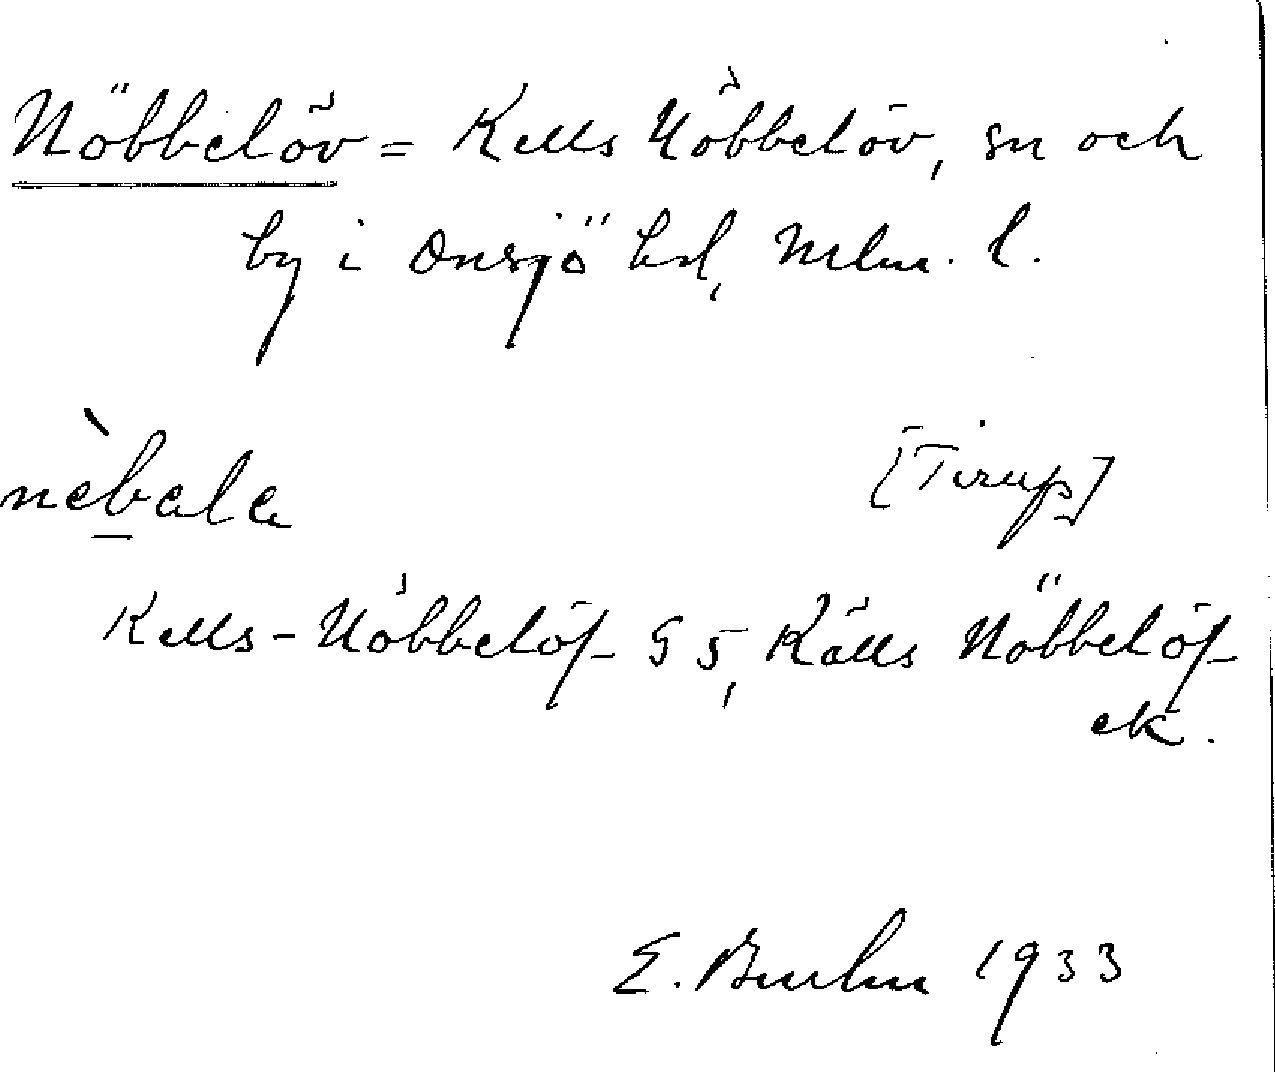 Nöbbelöv = Kells Nöbbelöv, sn och
by i Onsjö hd, Mlm. l.
nèbala [Tirup]
Kells-Nöbbelöf G 5, Källs Nöbbelöf
ek.
E. Bruhn 1933